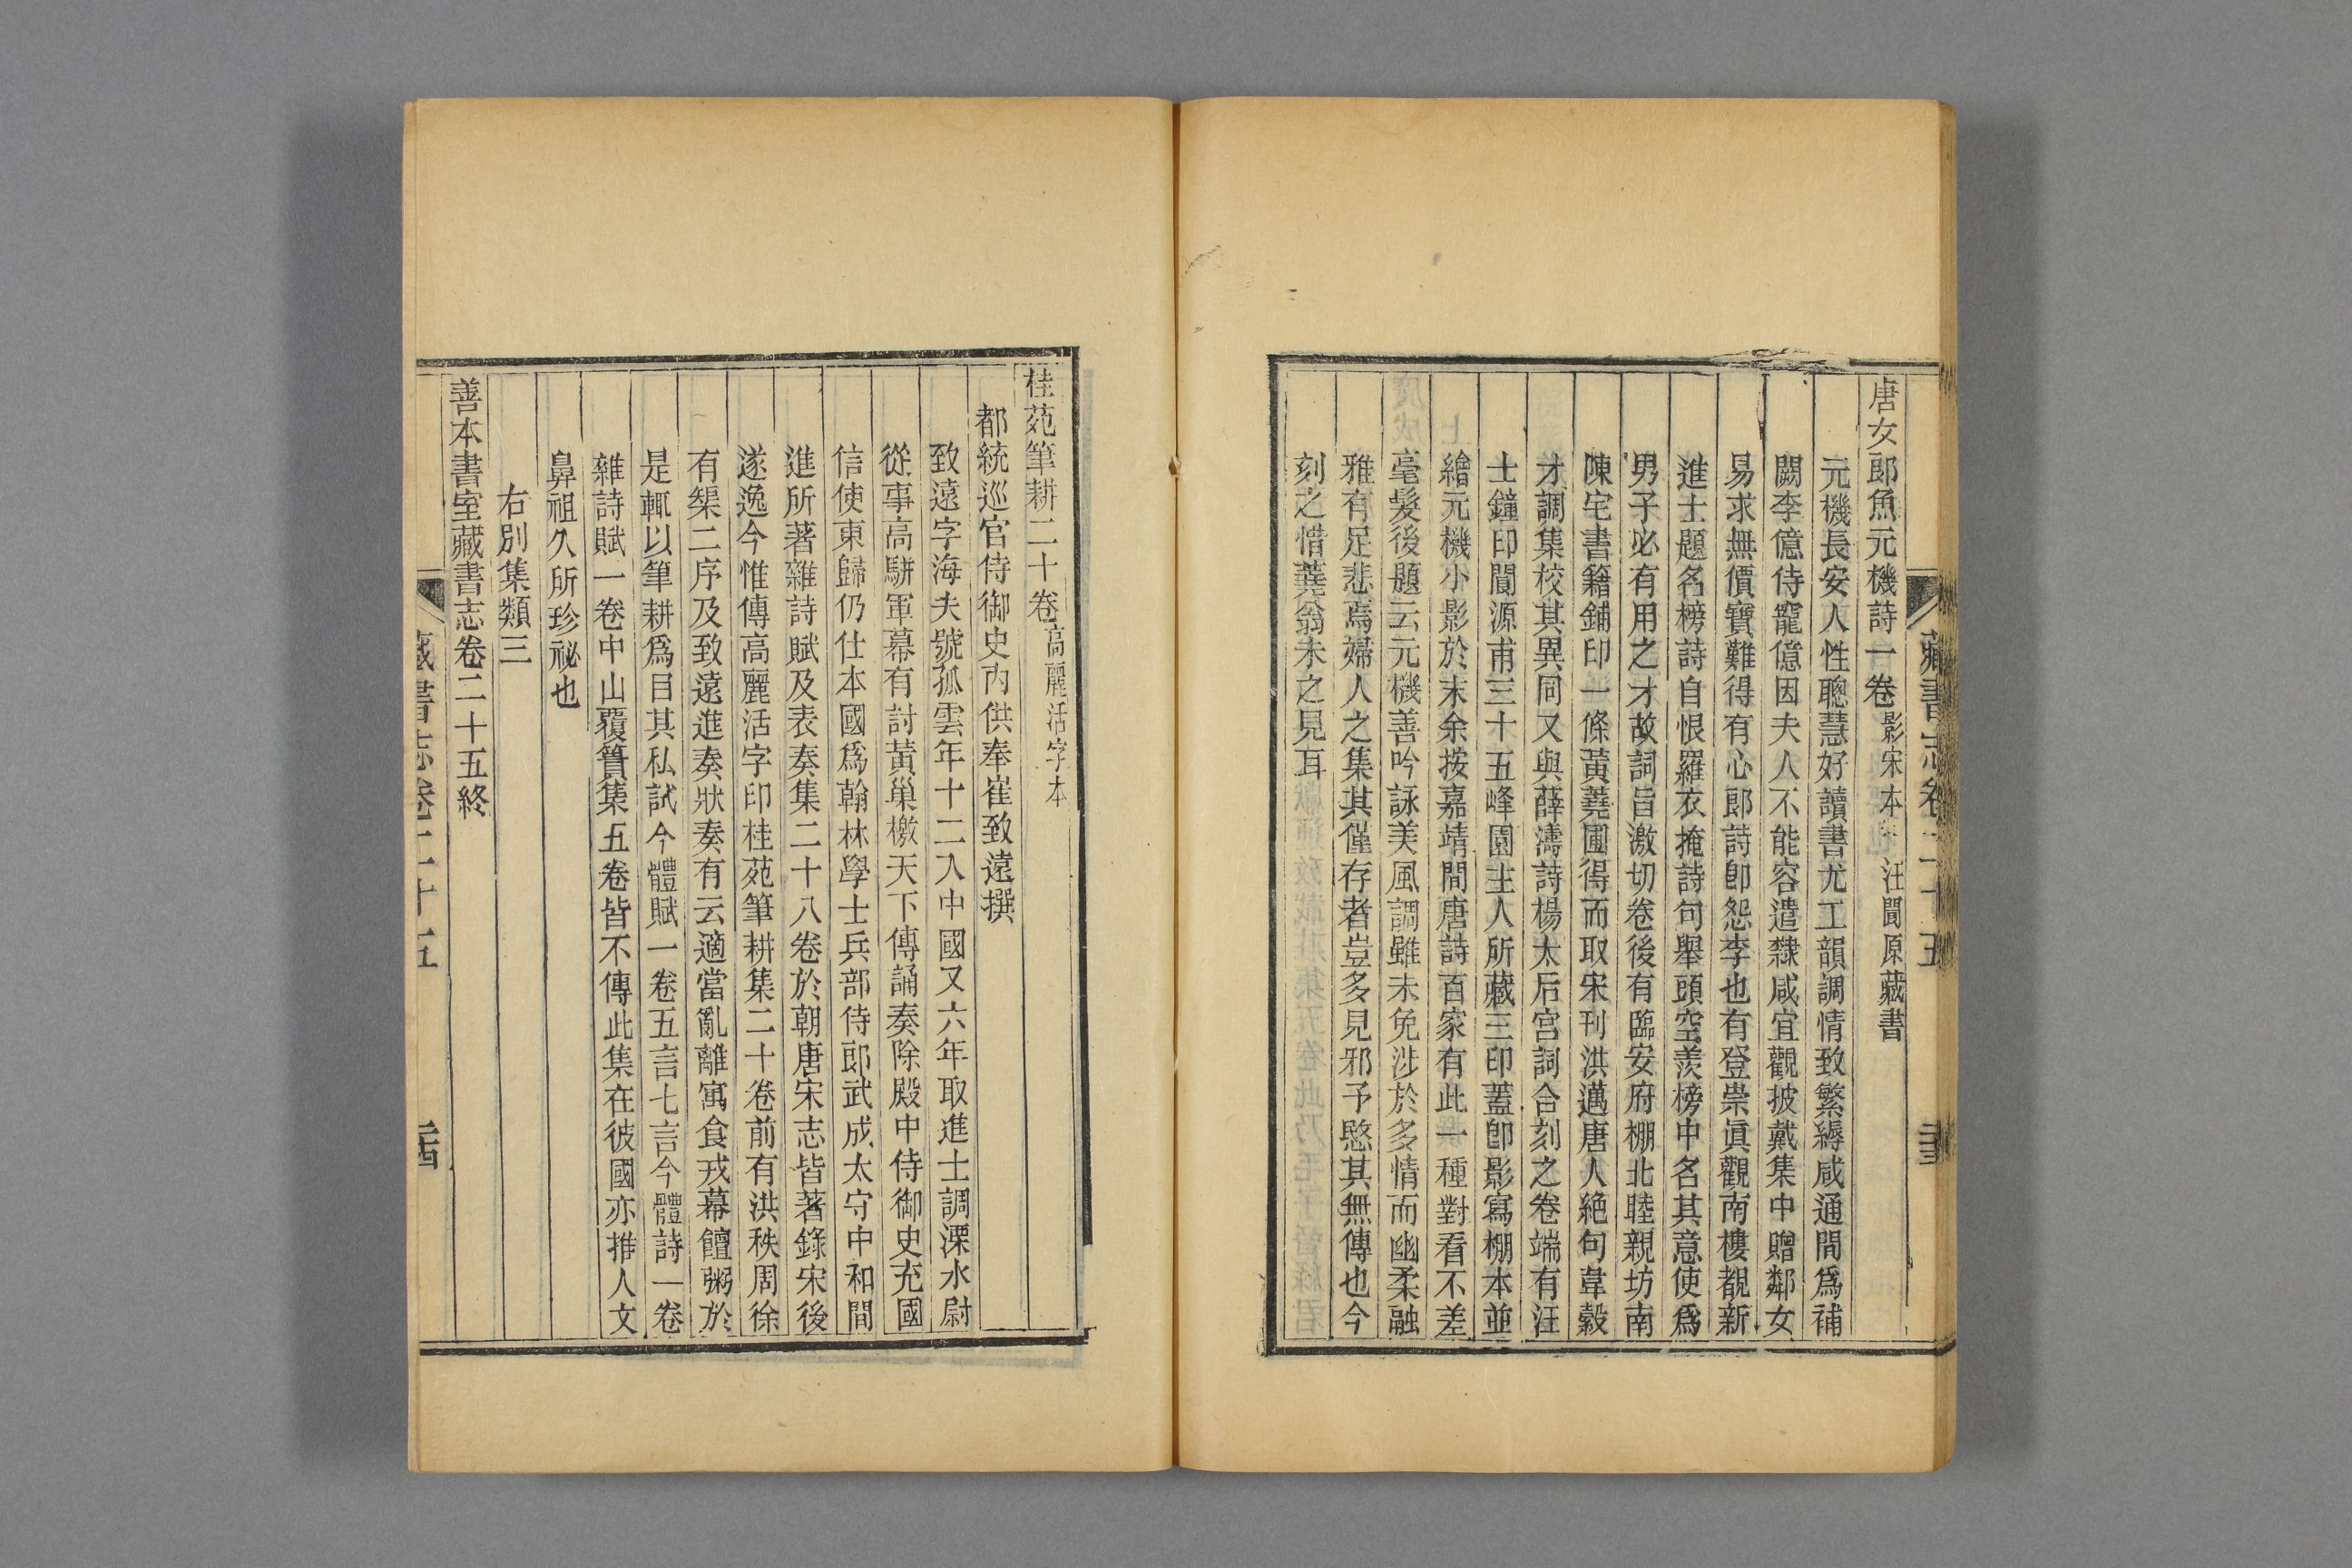 藏書志卷二十五
唐女郎魚元機詩一卷影宋本 汪閬原藏書
元機長安人性聰慧好讀書尤工韻調情致繁縟咸通間爲補
闕李億侍寵億因夫人不能容遣隸咸宜觀披戴集中贈鄰女
易求無價寶難得有心郎詩卽怨李也有登崇眞觀南樓覩新
進士題名榜詩自恨羅衣掩詩句舉頭空羨榜中名其意使爲
男子必有用之才故詞旨激切卷後有臨安府棚北睦親坊南
陳宅書籍鋪印一條黃蕘圃得而取宋刊洪邁唐人絕句韋縠
才調集校其異同又與薛濤詩楊太后宮詞合刻之卷端有汪
士鐘印閬源甫三十五峰園主人所藏三印蓋卽影寫棚本並
繪元機小影於末余按嘉靖間唐詩百家有此一種對看不差
毫髮後題云元機善吟詠美風調雖未免涉於多情而幽柔融
雅有足悲焉婦人之集其僅存者豈多見邪予愍其無傳也今
刻之惜蕘翁未之見耳
桂苑筆耕二十卷高麗活字本
都統巡官侍御史內供奉崔致遠撰
致遠字海夫號孤雲年十二入中國又六年取進士調溧水尉
從事高駢軍幕有討黃巢檄天下傳誦奏除殿中侍御史充國
信使東歸仍仕本國爲翰林學士兵部侍郎武成太守中和間
進所著雜詩賦及表奏集二十八卷於朝唐宋志皆著錄宋後
遂逸今惟傳高麗活字印桂苑筆耕集二十卷前有洪秩周徐
有榘二序及致遠進奏狀奏有云適當亂離寓食戎幕饘粥於
是輒以筆耕爲目其私試今體賦一卷五言七言今體詩一卷
雜詩賦一卷中山覆簣集五卷皆不傳此集在彼國亦推人文
鼻祖久所珍祕也
右別集類三
善本書室藏書志卷二十五終
藏書志卷二十五